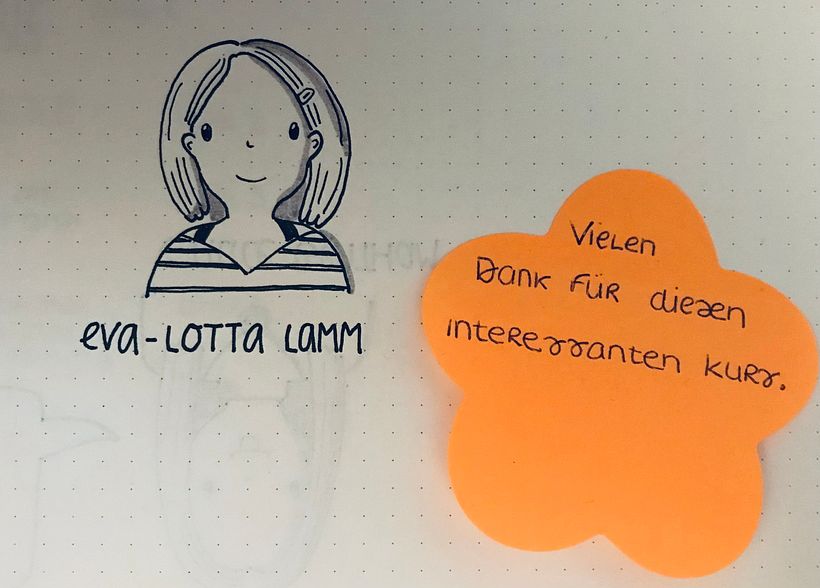 eva-LOTTA LAMM
Vielen
Dank FÜR diesen
interessanten kurs.